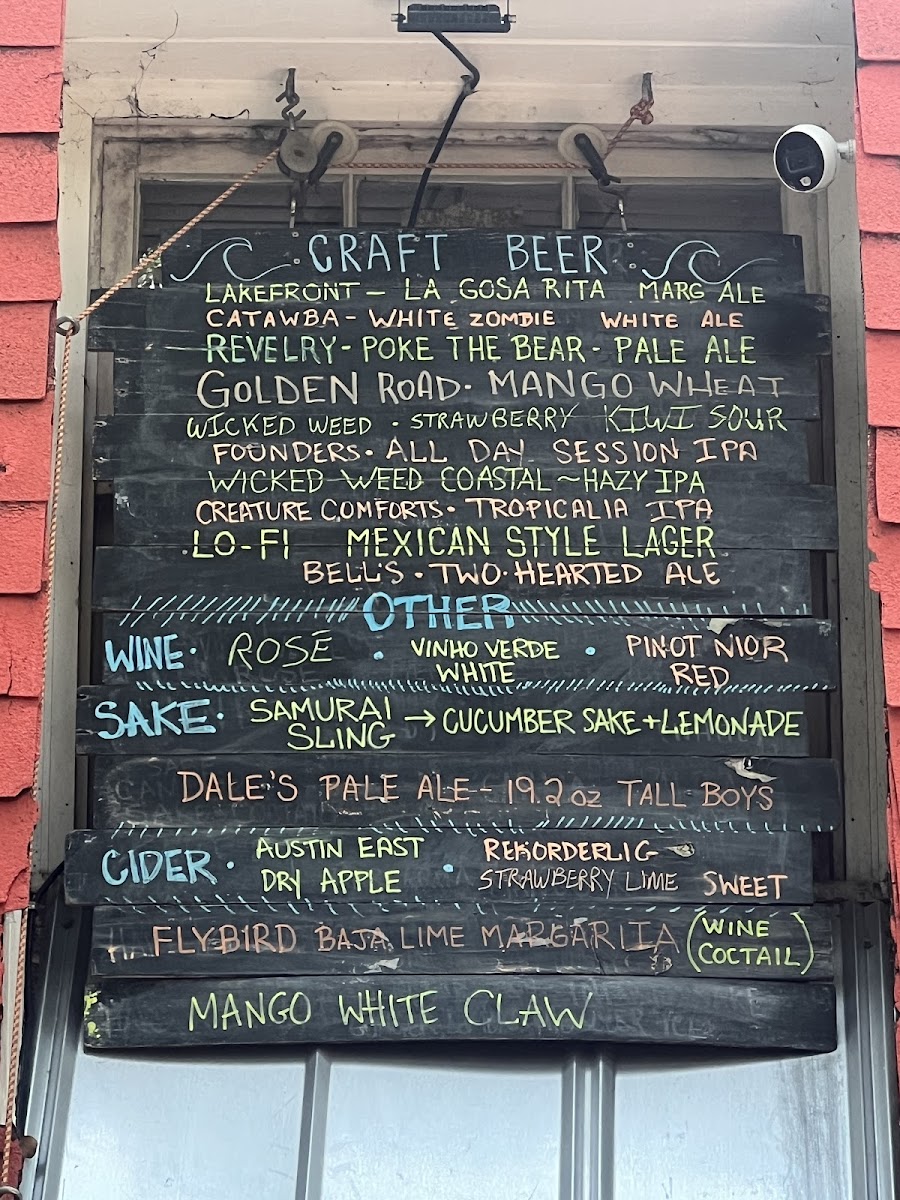 CRAFT BEER
LAKEFRONT - LA GOSA RITA MARG ALE
CATAWBA - WHITE ZOMBIE WHITE ALE
REVELRY - POKE THE BEAR - PALE ALE
GOLDEN ROAD · MANGO WHEAT
WICKED WEED · STRAWBERRY KIWI SOUR
FOUNDERS · ALL DAY SESSION IPA
WICKED WEED COASTAL ~ HAZY IPA
CREATURE COMFORTS · TROPICALIA IPA
LO-FI MEXICAN STYLE LAGER
BELL'S · TWO·HEARTED ALE
OTHER
WINE · ROSÉ · VINHO VERDE WHITE · PINOT NIOR RED
SAKE · SAMURAI SLING → CUCUMBER SAKE + LEMONADE
DALE'S PALE ALE - 19.2 oz TALL BOYS
CIDER · AUSTIN EAST DRY APPLE · REKORDERLIG STRAWBERRY LIME SWEET
FLYBIRD BAJA LIME MARGARITA (WINE COCTAIL)
MANGO WHITE CLAW